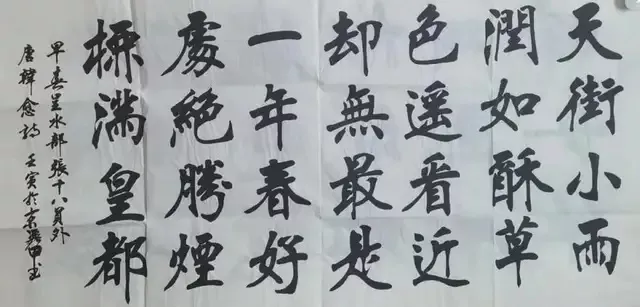 天街小雨
潤如酥草
色遥看近
却無最是
一年春好
處絕勝煙
滿皇都
早春呈水部張十八員外
唐韓愈詩 壬寅於京